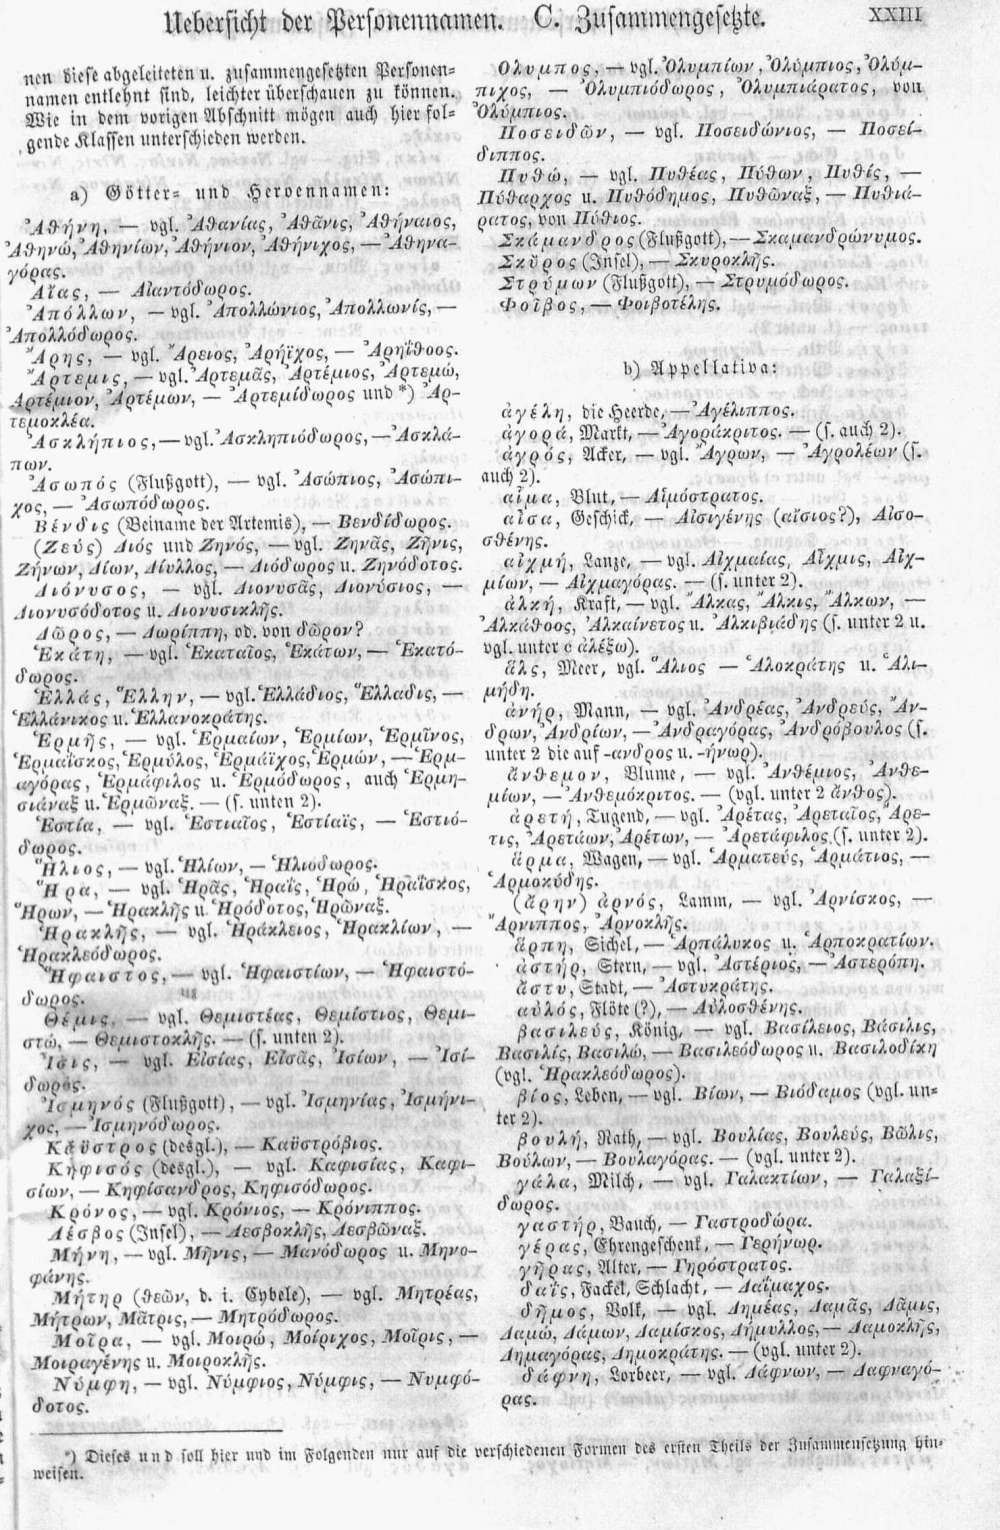 Uebersicht der Personennamen. C. Zusammengesetzte. XXIII
nen diese abgeleiteten u. zusammengesetzten Personen=
namen entlehnt sind, leichter überschauen zu können.
Wie in dem vorigen Abschnitt mögen auch hier fol=
gende Klassen unterschieden werden.
a) Götter= und Heroennamen:
Ἀθήνη, — vgl. Ἀθανίας, Ἀθᾶνις, Ἀθήναιος,
Ἀθηνώ, Ἀθηνίων, Ἀθήνιον, Ἀθήνιχος, — Ἀθηνα-
γόρας.
Αἴας, — Αἰαντόδωρος.
Ἀπόλλων, — vgl. Ἀπολλώνιος, Ἀπολλωνίς, —
Ἀπολλόδωρος.
Ἄρης, — vgl. Ἄρειος, Ἀρήϊχος, — Ἀρηΐθοος.
Ἄρτεμις, — vgl. Ἀρτεμᾶς, Ἀρτέμιος, Ἀρτεμώ,
Ἀρτέμιον, Ἀρτέμων, — Ἀρτεμίδωρος und *) Ἀρ-
τεμοκλέα.
Ἀσκλήπιος, — vgl. Ἀσκληπιόδωρος, — Ἀσκλά-
πων.
Ἀσωπός (Flußgott), — vgl. Ἀσώπιος, Ἀσώπι-
χος, — Ἀσωπόδωρος.
Βένδις (Beiname der Artemis), — Βενδίδωρος.
(Ζεύς) Διός und Ζηνός, — vgl. Ζηνᾶς, Ζῆνις,
Ζήνων, Δίων, Δίυλλος, — Διόδωρος u. Ζηνόδοτος.
Διόνυσος, — vgl. Διονυσᾶς, Διονύσιος, —
Διονυσόδοτος u. Διονυσικλῆς.
Δῶρος, — Δωρίππη, od. von δῶρον?
Ἑκάτη, — vgl. Ἑκαταῖος, Ἑκάτων, — Ἑκατό-
δωρος.
Ἑλλάς, Ἕλλην, — vgl. Ἑλλάδιος, Ἕλλαδις, —
Ἑλλάνικος u. Ἑλλανοκράτης.
Ἑρμῆς, — vgl. Ἑρμαίων, Ἑρμίων, Ἑρμῖνος,
Ἑρμαΐσκος, Ἑρμύλος, Ἑρμάϊχος, Ἑρμών, — Ἑρμ-
αγόρας, Ἑρμάφιλος u. Ἑρμόδωρος, auch Ἑρμη-
σιάναξ u. Ἑρμῶναξ. — (s. unten 2).
Ἑστία, — vgl. Ἑστιαῖος, Ἑστίαϊς, — Ἑστιό-
δωρος.
Ἥλιος, — vgl. Ἡλίων, — Ἡλιόδωρος.
Ἥρα, — vgl. Ἡρᾶς, Ἡραΐς, Ἡρώ, Ἡραΐσκος,
Ἥρων, — Ἡρακλῆς u. Ἡρόδοτος, Ἡρῶναξ.
Ἡρακλῆς, — vgl. Ἡράκλειος, Ἡρακλίων, —
Ἡρακλεόδωρος.
Ἥφαιστος, — vgl. Ἡφαιστίων, — Ἡφαιστό-
δωρος.
Θέμις, — vgl. Θεμιστέας, Θεμίστιος, Θεμι-
στώ, — Θεμιστοκλῆς. — (s. unten 2).
Ἶσις, — vgl. Εἰσίας, Εἰσᾶς, Ἰσίων, — Ἰσί-
δωρος.
Ἰσμηνός (Flußgott), — vgl. Ἰσμηνίας, Ἰσμήνι-
χος, — Ἰσμηνόδωρος.
Κάϋστρος (desgl.), — Καϋστρόβιος.
Κηφισός (desgl.), — vgl. Καφισίας, Καφι-
σίων, — Κηφίσανδρος, Κηφισόδωρος.
Κρόνος, — vgl. Κρόνιος, — Κρόνιππος.
Λέσβος (Insel), — Λεσβοκλῆς, Λεσβῶναξ.
Μήνη, — vgl. Μῆνις, — Μανόδωρος u. Μηνο-
φάνης.
Μήτηρ (θεῶν, d. i. Cybele), — vgl. Μητρέας,
Μήτρων, Μᾶτρις, — Μητρόδωρος.
Μοῖρα, — vgl. Μοιρώ, Μοίριχος, Μοῖρις, —
Μοιραγένης u. Μοιροκλῆς.
Νύμφη, — vgl. Νύμφιος, Νύμφις, — Νυμφό-
δοτος.
Ὄλυμπος, — vgl. Ὀλυμπίων, Ὀλύμπιος, Ὀλύμ-
πιχος, — Ὀλυμπιόδωρος, Ὀλυμπιάρατος, von
Ὀλύμπιος.
Ποσειδῶν, — vgl. Ποσειδώνιος, — Ποσεί-
διππος.
Πυθώ, — vgl. Πυθέας, Πύθων, Πυθίς, —
Πύθαρχος u. Πυθόδημος, Πυθῶναξ, — Πυθιά-
ρατος, von Πύθιος.
Σκάμανδρος (Flußgott), — Σκαμανδρώνυμος.
Σκῦρος (Insel), — Σκυροκλῆς.
Στρύμων (Flußgott), — Στρυμόδωρος.
Φοῖβος, — Φοιβοτέλης.
b) Appellativa:
ἀγέλη, die Heerde, — Ἀγέλιππος.
ἀγορά, Markt, — Ἀγοράκριτος. — (s. auch 2).
ἀγρός, Acker, — vgl. Ἄγρων, — Ἀγρολέων (s.
auch 2).
αἷμα, Blut, — Αἱμόστρατος.
αἶσα, Geschick, — Αἰσιγένης (αἴσιος?), Αἰσο-
σθένης.
αἰχμή, Lanze, — vgl. Αἰχμαίας, Αἶχμις, Αἰχ-
μίων, — Αἰχμαγόρας. — (s. unter 2).
ἀλκή, Kraft, — vgl. Ἄλκας, Ἄλκις, Ἄλκων, —
Ἀλκάθοος, Ἀλκαίνετος u. Ἀλκιβιάδης (s. unter 2 u.
vgl. unter c ἀλέξω).
ἅλς, Meer, vgl. Ἅλιος — Ἁλοκράτης u. Ἁλι-
μήδη.
ἀνήρ, Mann, — vgl. Ἀνδρέας, Ἀνδρεύς, Ἄν-
δρων, Ἀνδρίων, — Ἀνδραγόρας, Ἀνδρόβουλος (s.
unter 2 die auf -ανδρος u. -ήνωρ).
ἄνθεμον, Blume, — vgl. Ἀνθέμιος, Ἀνθε-
μίων, — Ἀνθεμόκριτος. — (vgl. unter 2 ἄνθος).
ἀρετή, Tugend, — vgl. Ἀρέτας, Ἀρεταῖος, Ἀρε-
τις, Ἀρετάων, Ἀρέτων, — Ἀρετάφιλος (s. unter 2).
ἅρμα, Wagen, — vgl. Ἁρματεύς, Ἁρμάτιος, —
Ἁρμοκύδης.
(ἄρην) ἀρνός, Lamm, — vgl. Ἀρνίσκος, —
Ἄρνιππος, Ἀρνοκλῆς.
ἅρπη, Sichel, — Ἁρπάλυκος u. Ἁρποκρατίων.
ἀστήρ, Stern, — vgl. Ἀστέριος, — Ἀστερόπη.
ἄστυ, Stadt, — Ἀστυκράτης.
αὐλός, Flöte (?), — Αὐλοσθένης.
βασιλεύς, König, — vgl. Βασίλειος, Βάσιλις,
Βασιλίς, Βασιλώ, — Βασιλεόδωρος u. Βασιλοδίκη
(vgl. Ἡρακλεόδωρος).
βίος, Leben, — vgl. Βίων, — Βιόδαμος (vgl. un=
ter 2).
βουλή, Rath, — vgl. Βουλίας, Βουλεύς, Βῶλις,
Βούλων, — Βουλαγόρας. — (vgl. unter 2).
γάλα, Milch, — vgl. Γαλακτίων, — Γαλαξί-
δωρος.
γαστήρ, Bauch, — Γαστροδώρα.
γέρας, Ehrengeschenk, — Γερήνωρ.
γῆρας, Alter, — Γηρόστρατος.
δαΐς, Fackel, Schlacht, — Δαΐμαχος.
δῆμος, Volk, — vgl. Δημέας, Δαμᾶς, Δᾶμις,
Δαμώ, Δάμων, Δαμίσκος, Δήμυλλος, — Δαμοκλῆς,
Δημαγόρας, Δημοκράτης. — (vgl. unter 2).
δάφνη, Lorbeer, — vgl. Δάφνων, — Δαφναγό-
ρας.
*) Dieses und soll hier und im Folgenden nur auf die verschiedenen Formen des ersten Theils der Zusammensetzung hin=
weisen.